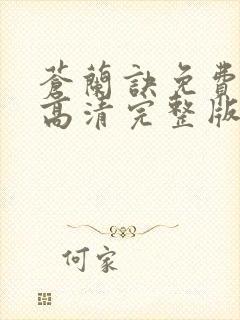 蒼蘭訣免費
高清完整版
何家